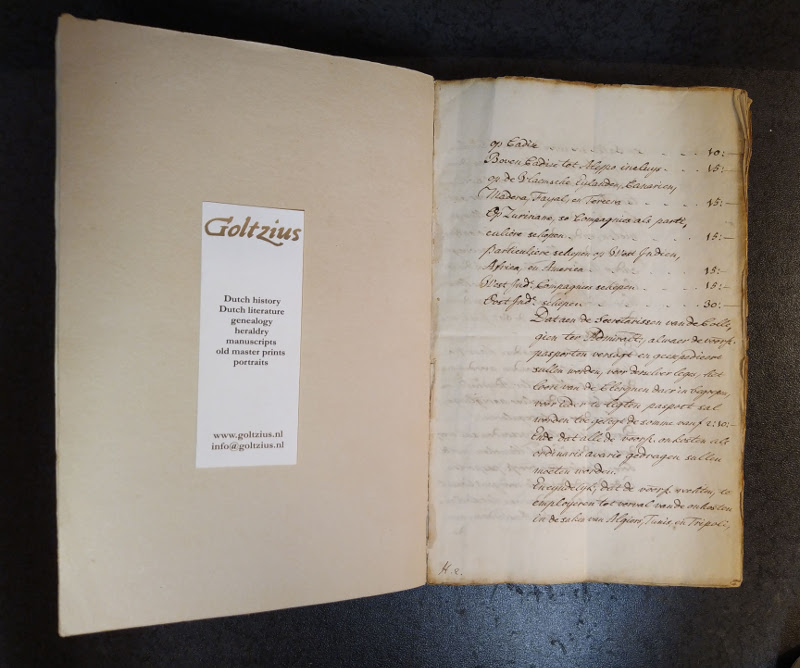 Goltzius
Dutch history
Dutch literature
genealogy
heraldry
manuscripts
old master prints
portraits
www.goltzius.nl
info@goltzius.nl
op Cadix 10:—
Boven Cadix tot Aleppo incluys 15:—
op de Vlaemsche Eylanden, Canarien,
Madera, Fayal, en Tercera 15:—
Op Zurinane, so Compagnies als parti,
culiere schepen 15:—
particuliere schepen op West Indien,
Africa, en America 15:—
West Ind: Compagnies schepen 15:—
Oost Ind: schepen 30:—
Dat aen de Secretarissen van de Colle,
gien ter Admiralt:, alwaer de voorsz.
pasporten versogt en geexpedieert
sullen worden, voor derselver leges, het
loon van de Clercquen daer in begrepen,
voor ider te ligten paspoort sal
worden toegelegt de somme van f 2:10:—
Ende dat alle de voorsz. onkosten als
ordinaris avarie gedragen sullen
moeten worden.
Eneyndelijk, dat de voorsz. vrechten, te
employeren tot verval van de onkosten
in de saken van Algiers, Tunis, en Tripoli,
H. 2.